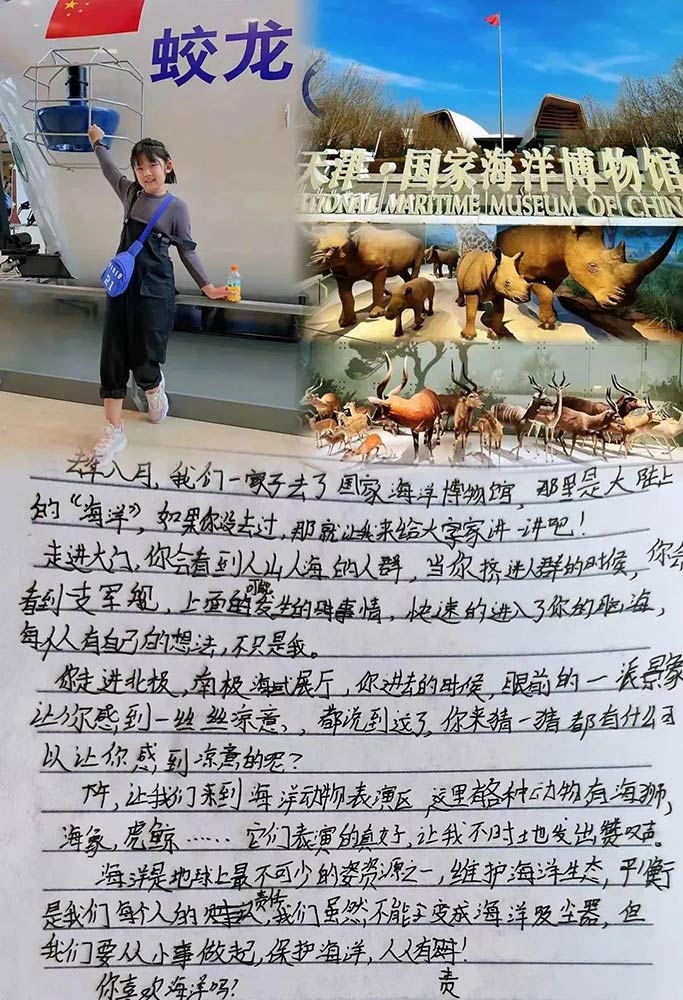 蛟龙
天津·国家海洋博物馆
NATIONAL MARITIME MUSEUM OF CHINA
21
去年八月，我们一家子去了国家海洋博物馆，那里是大陆上
的“海洋”，如果你没去过，那就让我来给大家讲一讲吧！
走进大门，你会看到人山人海的人群，当你挤进人群的时候，你会
看到支军舰，上面的可能发生的事情，快速的进入了你的脑海，
每个人有自己的想法，不只是我。
你走进北极，南极海展厅，你进去的时候，眼前的一派景象
让你感到一丝丝凉意、，都说到这了，你来猜一猜都有什么可
以让你感到凉意的呢？
下午，让我们来到海洋动物表演区，这里有各种动物有海狮，
海象，虎鲸……它们表演的真好，让我不时地发出赞叹声。
海洋是地球上最不可少的资源之一，维护海洋生态，平衡
是我们每个人的责任，我们虽然不能变成海洋吸尘器，但
我们要从小事做起，保护海洋，人人有责！
你喜欢海洋吗？